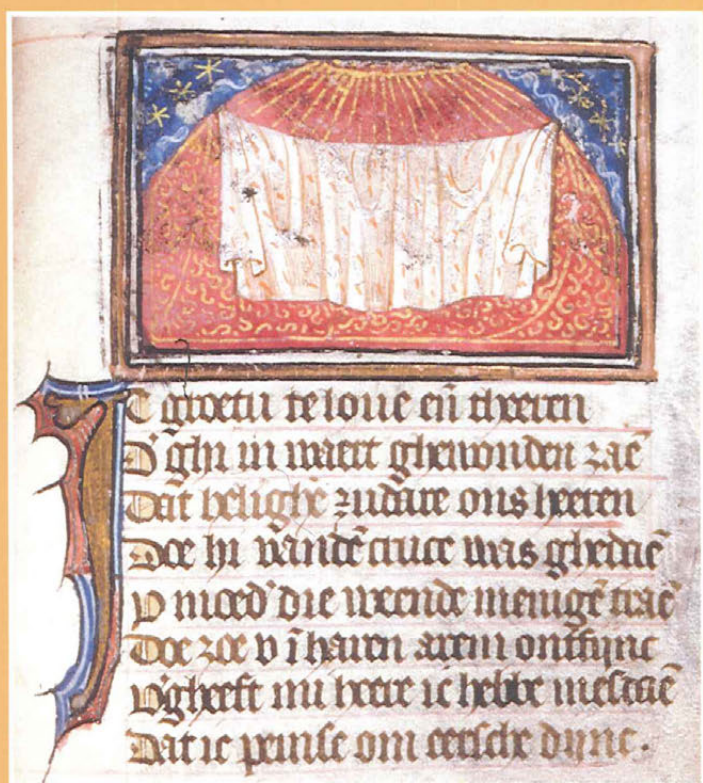 Ic groetu te loue en̄ theeren
D' ghi in waert ghewonden zaē
Dat helighē zudare ons heeren
Doe hi vandē cruce was ghedaē
V moed' die weende menigē traē
Doe zoe v ī haren arem ontfync
V'gheeft mi heere ic hebbe mesdaē
Dat ic peinse om eersche dync.